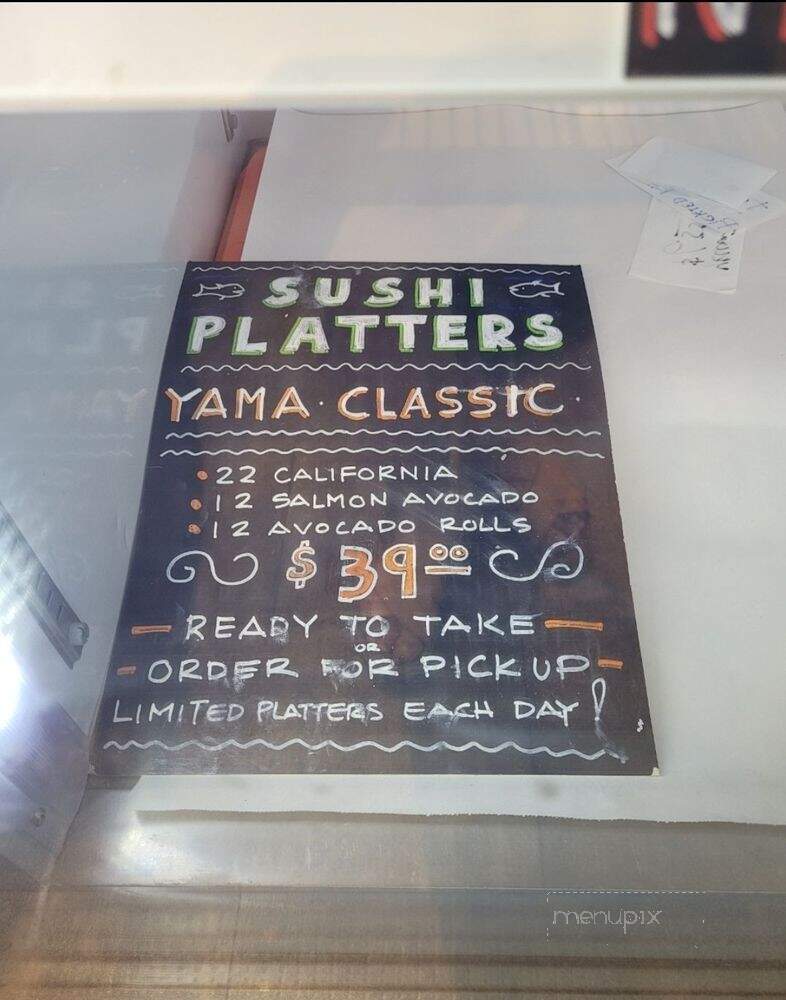 SUSHI
PLATTERS
YAMA · CLASSIC ·
• 22 CALIFORNIA
• 12 SALMON AVOCADO
• 12 AVOCADO ROLLS
$ 39.00
— READY TO TAKE —
OR
- ORDER FOR PICK UP -
LIMITED PLATTERS EACH DAY!
menupix